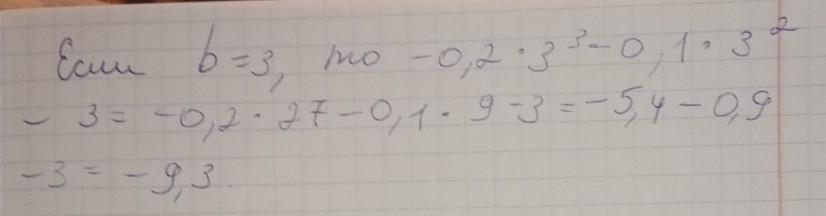 Если b=3, то -0,2·3³-0,1·3²
- 3= -0,2·27-0,1·9-3=-5,4-0,9
-3= -9,3.